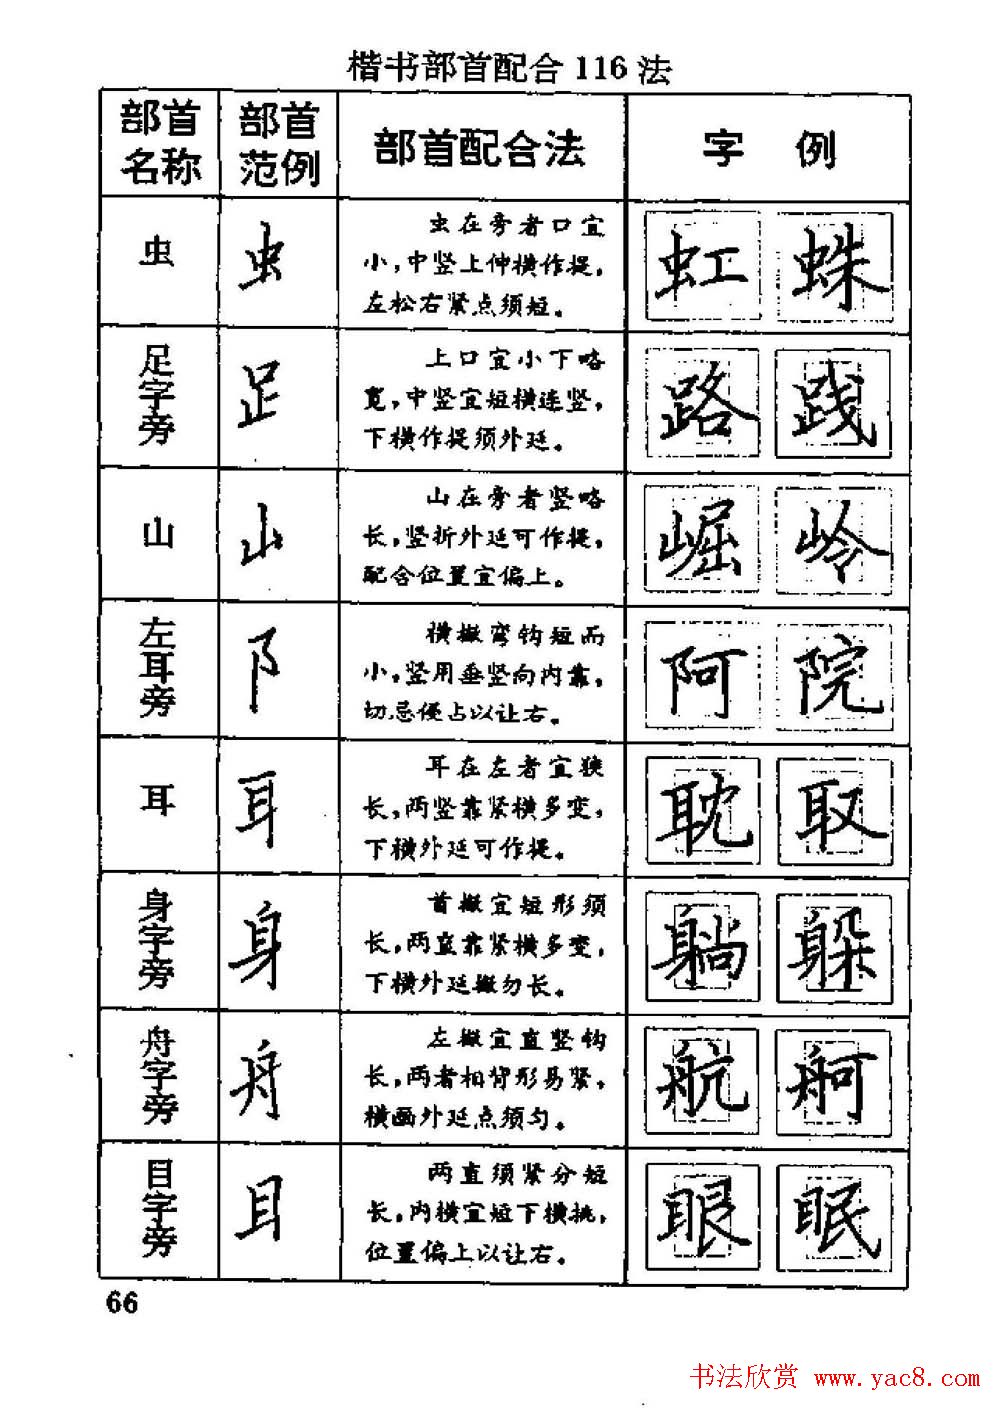 楷书部首配合116法
部首名称 部首范例 部首配合法 字 例
虫 虫 虫在旁者口宜 虹 蛛
小,中竖上伸横作提,
左松右紧点须短。
足字旁 𧾷 上口宜小下略 路 践
宽,中竖宜短横连竖,
下横作提须外延。
山 山 山在旁者竖略 崛 岭
长,竖折外延可作提,
配合位置宜偏上。
左耳旁 阝 横撇弯钩短而 阿 院
小,竖用垂竖向内靠,
切忌侵占以让右。
耳 耳 耳在左者宜狭 耽 取
长,两竖靠紧横多变,
下横外延可作提。
身字旁 身 首撇宜短形须 躺 躲
长,两直靠紧横多变,
下横外延撇勿长。
舟字旁 舟 左撇宜直竖钩 航 舸
长,两者相背形易紧,
横画外延点须匀。
目字旁 目 两直须紧分短 眼 眠
长,内横宜短下横挑,
位置偏上以让右。
66
书法欣赏 www.yac8.com